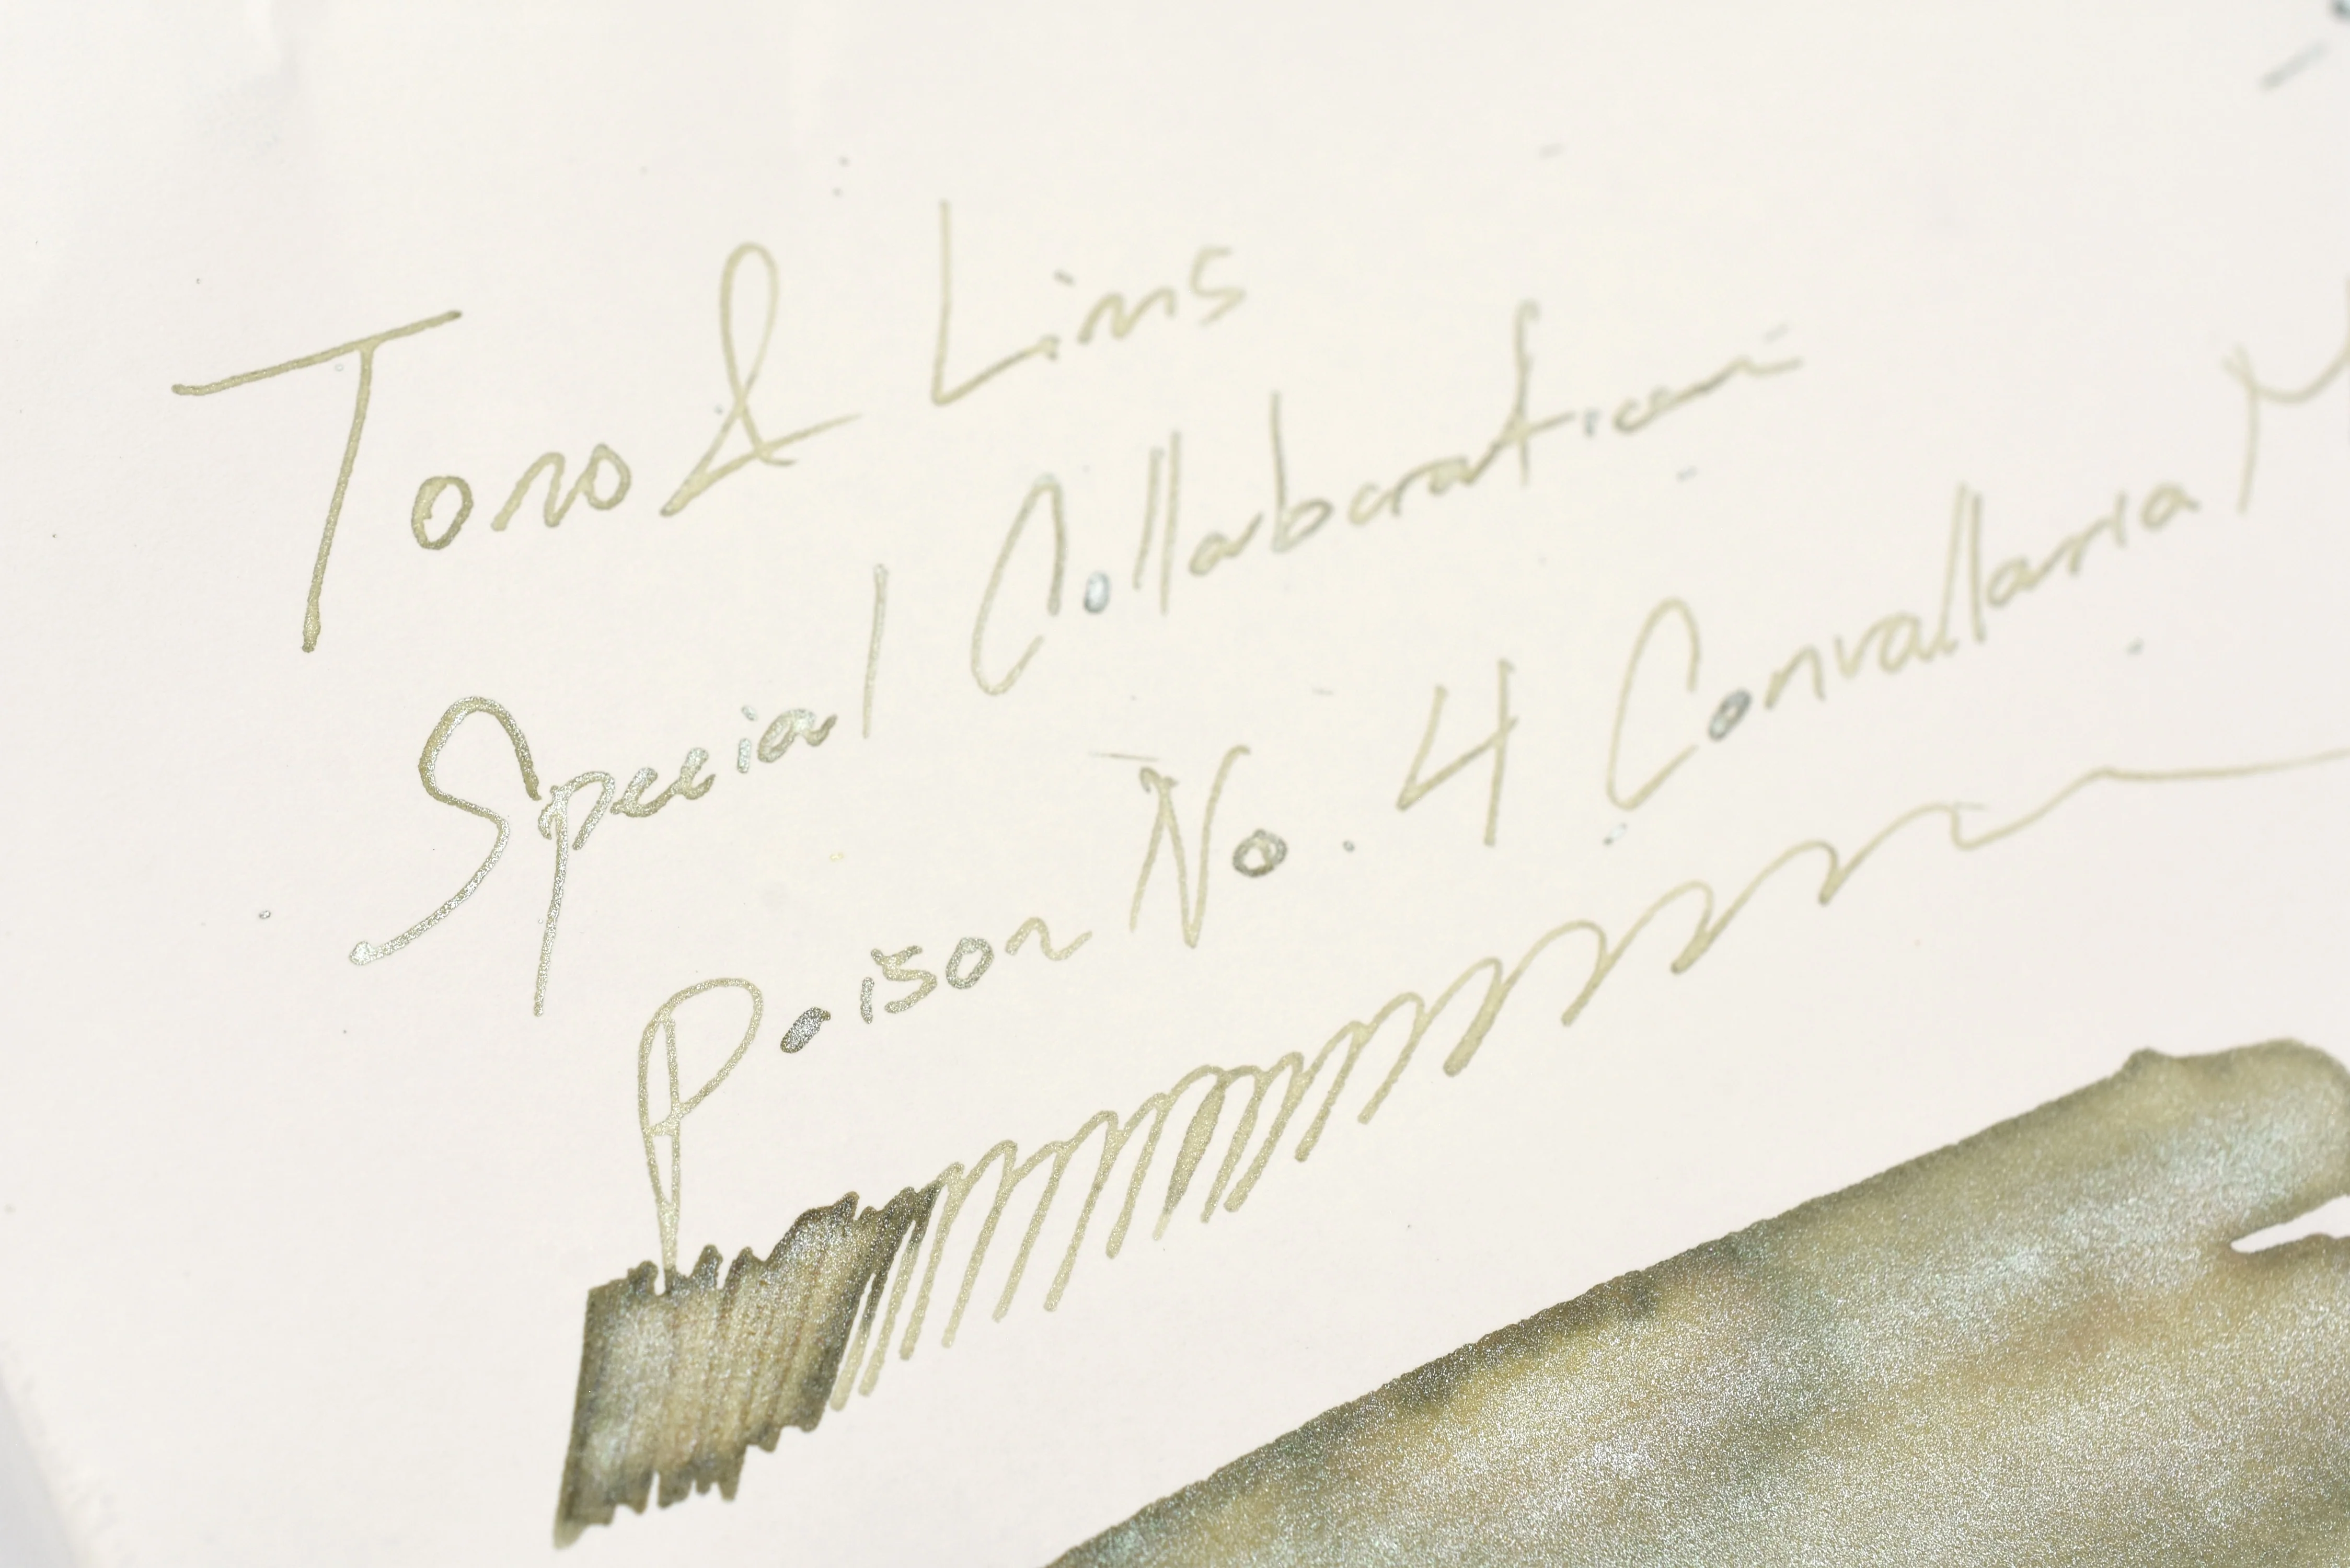 Tono & Lims
Special Collaboration
Poison No. 4 Convallaria